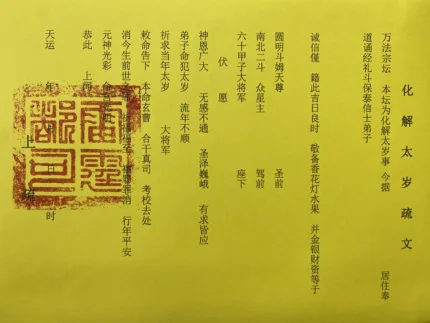 化解太岁疏文
万法宗坛 本坛为化解太岁事 今据 居住奉
道诵经礼斗保泰信士弟子
诚信僅 籍此吉日良时 敬备香花灯水果 并金银财赀等于
圆明斗姆天尊 圣前
南北二斗 众星主 驾前
六十甲子大将军 座下
伏愿
神恩广大 无感不通 圣泽巍峨 有求皆应
弟子命犯太岁 流年不顺
祈求当年太岁 大将军
敕命告下 本命玄曹 合干真司 考校去处
消今生前世 消 行年平安
元神光彩
恭此 上
天运 年 月 日 时
上 疏
雷霆都司